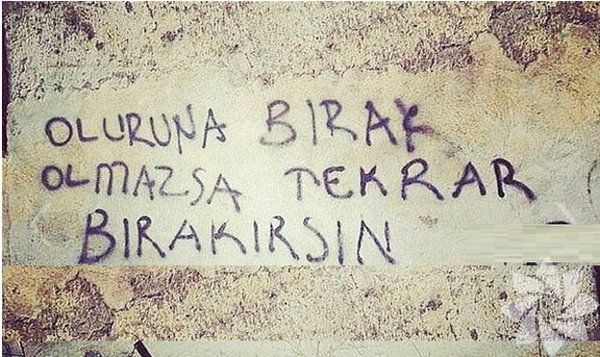 OLURUNA BIRAK
OLMAZSA TEKRAR
BIRAKIRSIN